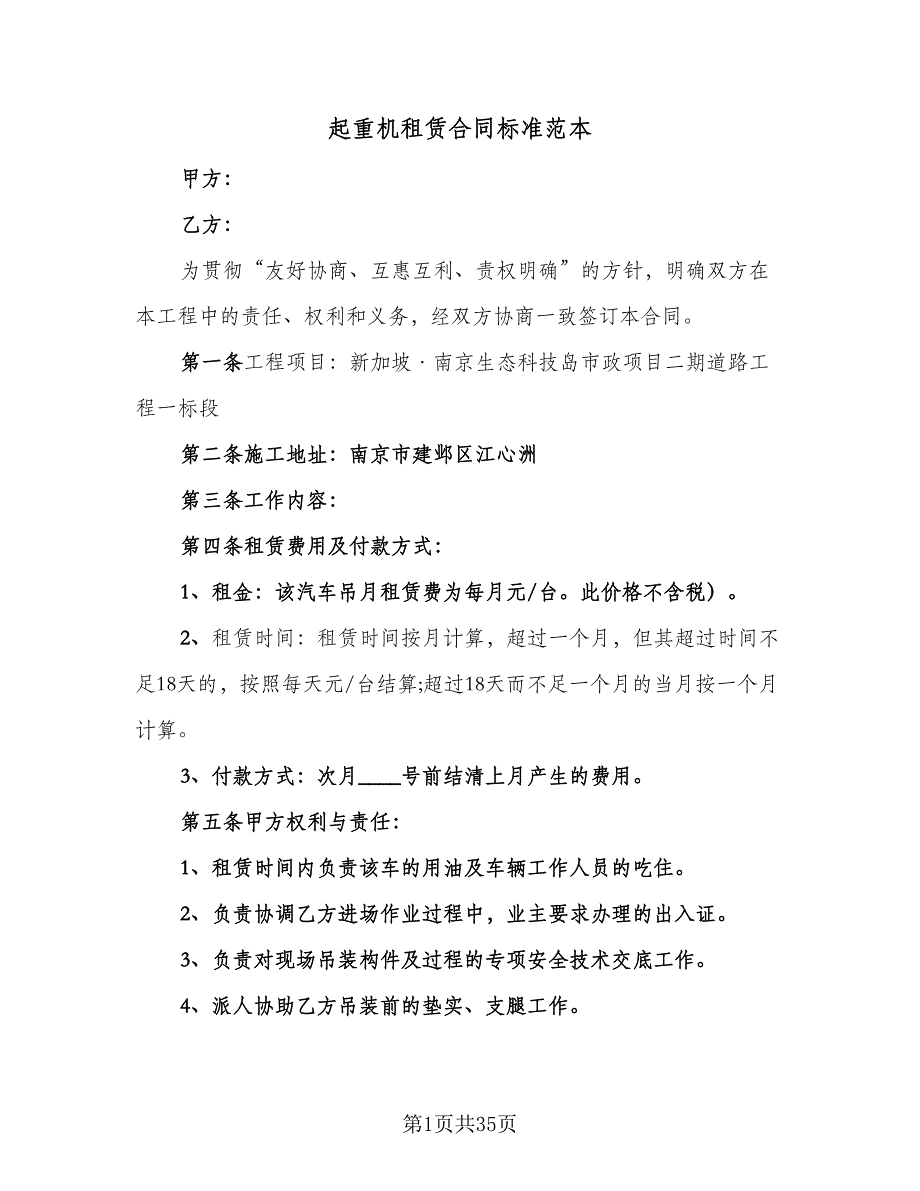 起重机租赁合同标准范本
甲方：
乙方：
为贯彻“友好协商、互惠互利、责权明确”的方针，明确双方在
本工程中的责任、权利和义务，经双方协商一致签订本合同。
第一条工程项目：新加坡·南京生态科技岛市政项目二期道路工
程一标段
第二条施工地址：南京市建邺区江心洲
第三条工作内容：
第四条租赁费用及付款方式：
1、租金：该汽车吊月租赁费为每月元/台。此价格不含税）。
2、租赁时间：租赁时间按月计算，超过一个月，但其超过时间不
足18天的，按照每天元/台结算;超过18天而不足一个月的当月按一个月
计算。
3、付款方式：次月____号前结清上月产生的费用。
第五条甲方权利与责任：
1、租赁时间内负责该车的用油及车辆工作人员的吃住。
2、负责协调乙方进场作业过程中，业主要求办理的出入证。
3、负责对现场吊装构件及过程的专项安全技术交底工作。
4、派人协助乙方吊装前的垫实、支腿工作。
第1页共35页